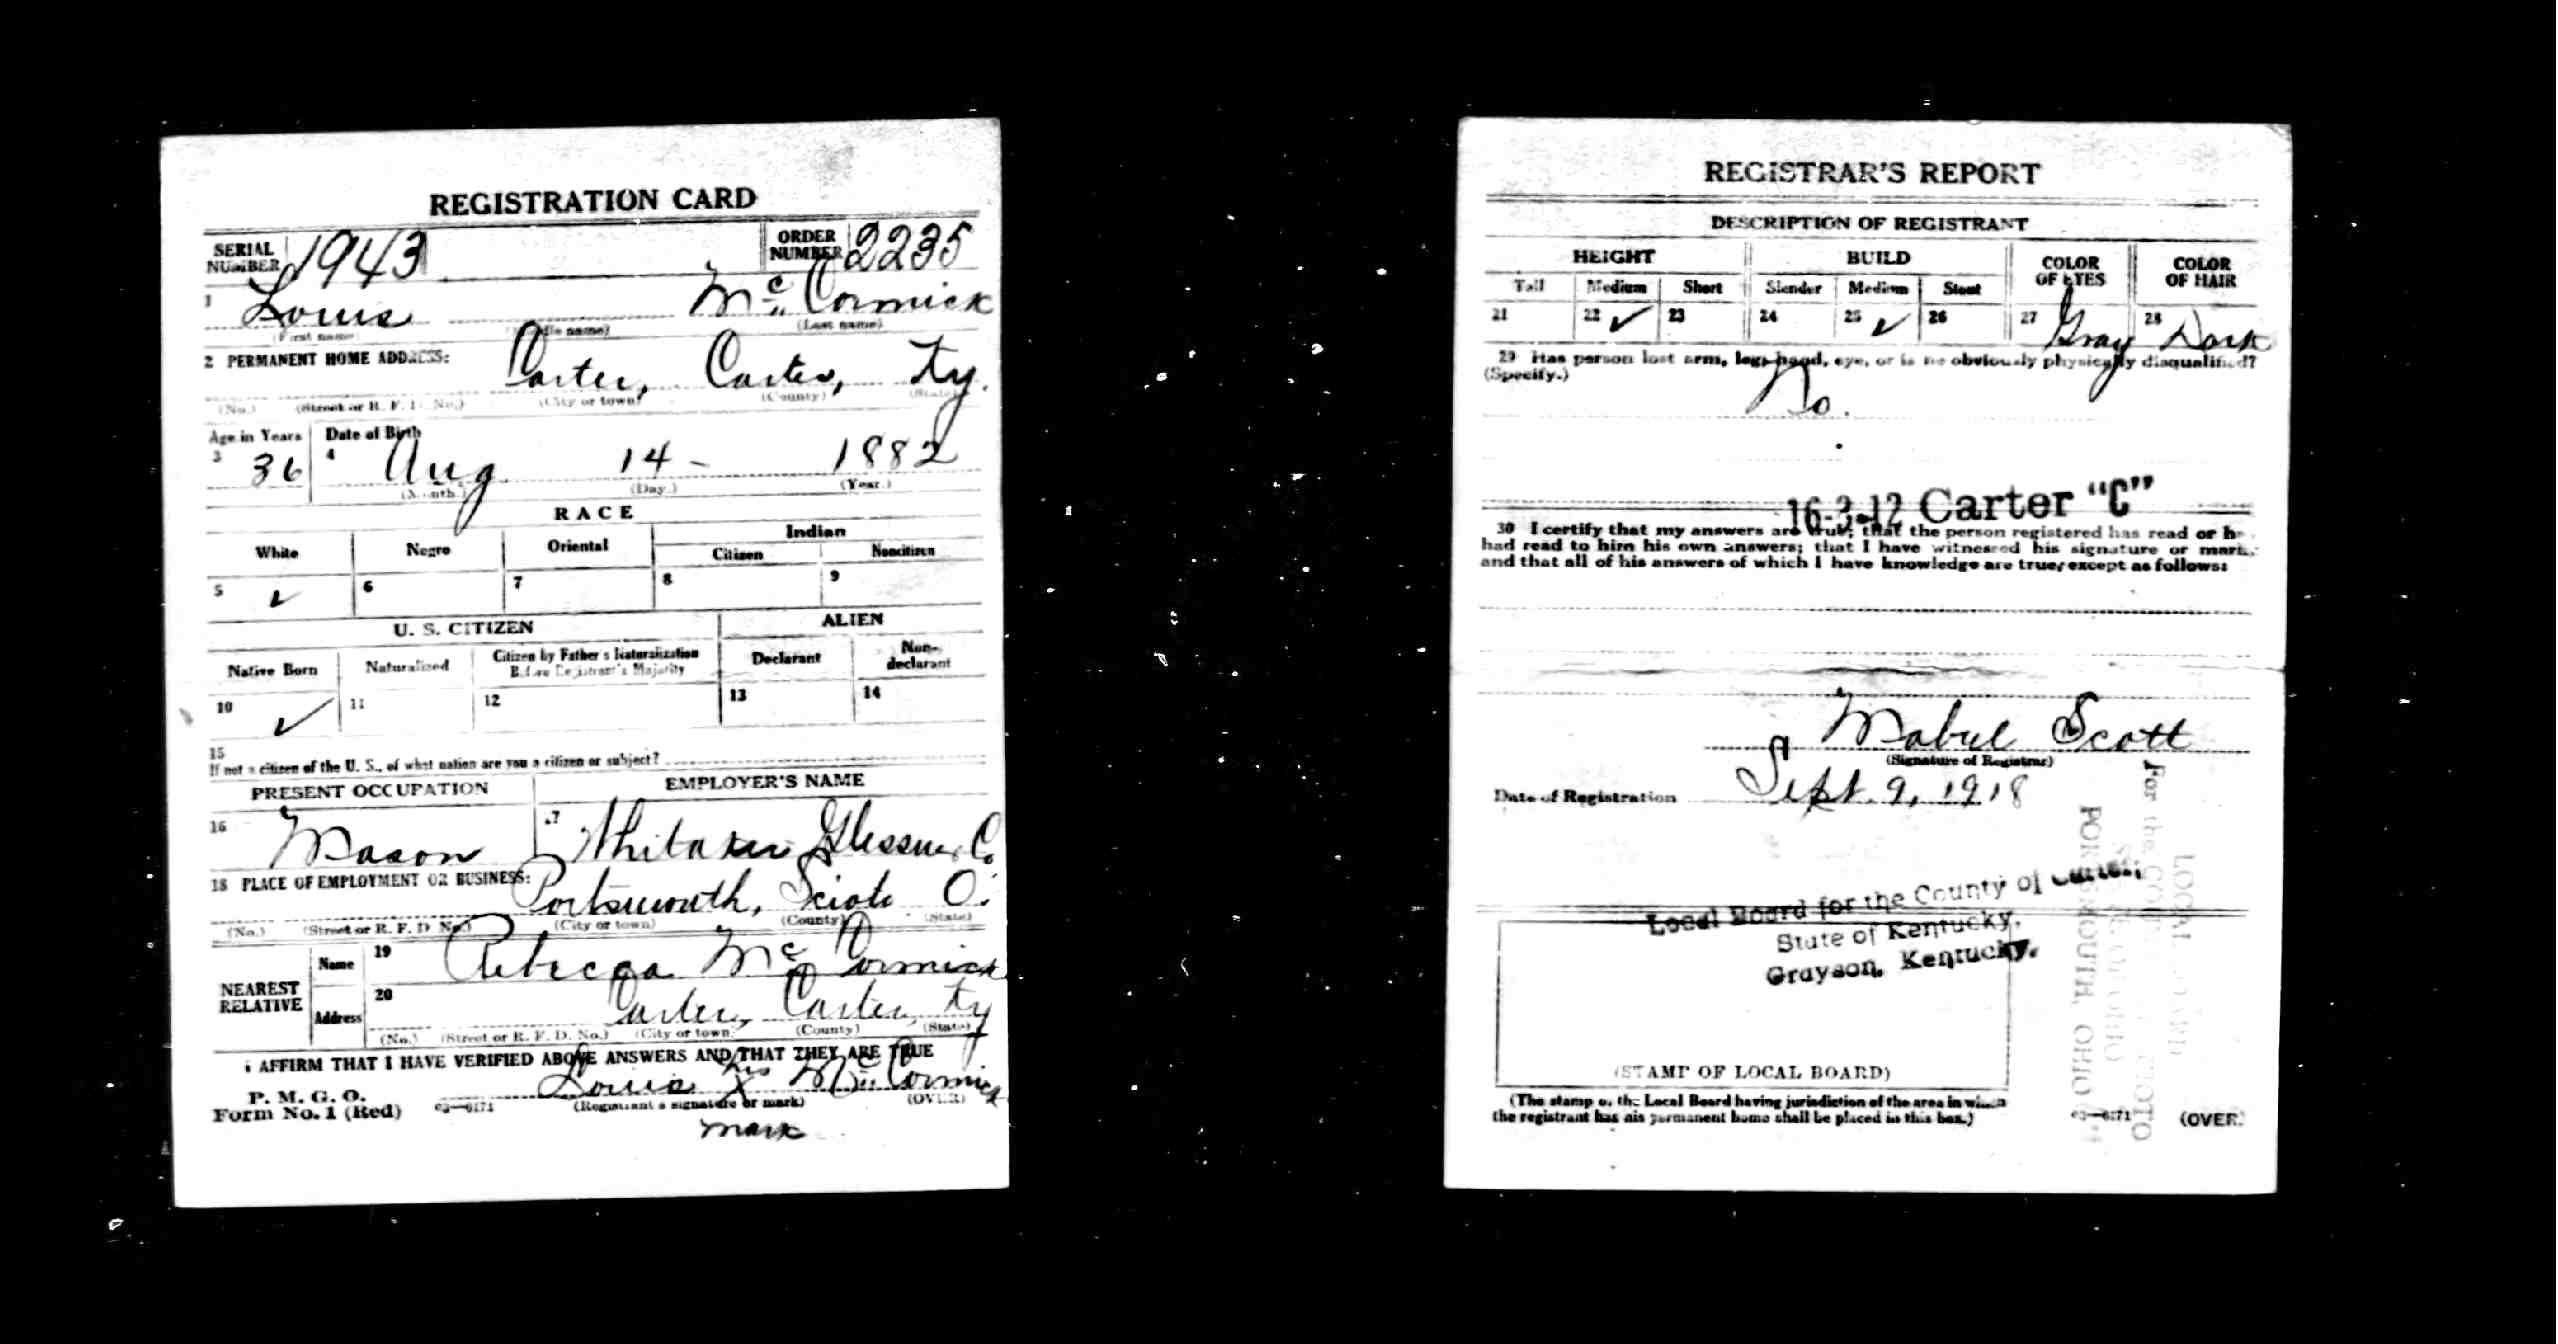 REGISTRATION CARD
SERIAL NUMBER 1943 ORDER NUMBER 2235
1 Louis McCormick
(First name) (Last name)
2 PERMANENT HOME ADDRESS: Carter, Carter, Ky.
(No.) (Street or R. F. D. No.) (City or town) (County) (State)
Age in Years Date of Birth
3 36 4 Aug 14 - 1882
(Month.) (Day.) (Year.)
RACE
White Negro Oriental Indian
Citizen Noncitizen
5 ✓ 6 7 8 9
U. S. CITIZEN ALIEN
Native Born Naturalized Citizen by Father's Naturalization Before Registrant's Majority Declarant Non-declarant
10 ✓ 11 12 13 14
15
If not a citizen of the U. S., of what nation are you a citizen or subject?
PRESENT OCCUPATION EMPLOYER'S NAME
16 Mason 17 Whitaker Glessner Co
18 PLACE OF EMPLOYMENT OR BUSINESS: Portsmouth, Scioto O.
(No.) (Street or R. F. D. No.) (City or town) (County) (State)
NEAREST RELATIVE Name 19 Rebecca McCormick
Address 20 Carter, Carter, Ky
(No.) (Street or R. F. D. No.) (City or town) (County) (State)
I AFFIRM THAT I HAVE VERIFIED ABOVE ANSWERS AND THAT THEY ARE TRUE
P. M. G. O.
Form No. 1 (Red) 03—6171 Louis his X McCormick
(Registrant's signature or mark) (OVER)
mark
REGISTRAR'S REPORT
DESCRIPTION OF REGISTRANT
HEIGHT BUILD COLOR OF EYES COLOR OF HAIR
Tall Medium Short Slender Medium Stout
21 22 ✓ 23 24 25 ✓ 26 27 Gray 28 Dark
29 Has person lost arm, leg, hand, eye, or is he obviously physically disqualified?
(Specify.) No.
16-3-12 Carter "C"
30 I certify that my answers are true; that the person registered has read or has
had read to him his own answers; that I have witnessed his signature or mark,
and that all of his answers of which I have knowledge are true, except as follows:
Mabel Scott
(Signature of Registrar)
Date of Registration Sept. 9, 1918
Local Board for the County of Carter,
State of Kentucky,
Grayson, Kentucky.
(STAMP OF LOCAL BOARD)
(The stamp of the Local Board having jurisdiction of the area in which
the registrant has his permanent home shall be placed in this box.)
03—6171 (OVER)
LOCAL
For the
PORTSMOUTH, OHIO